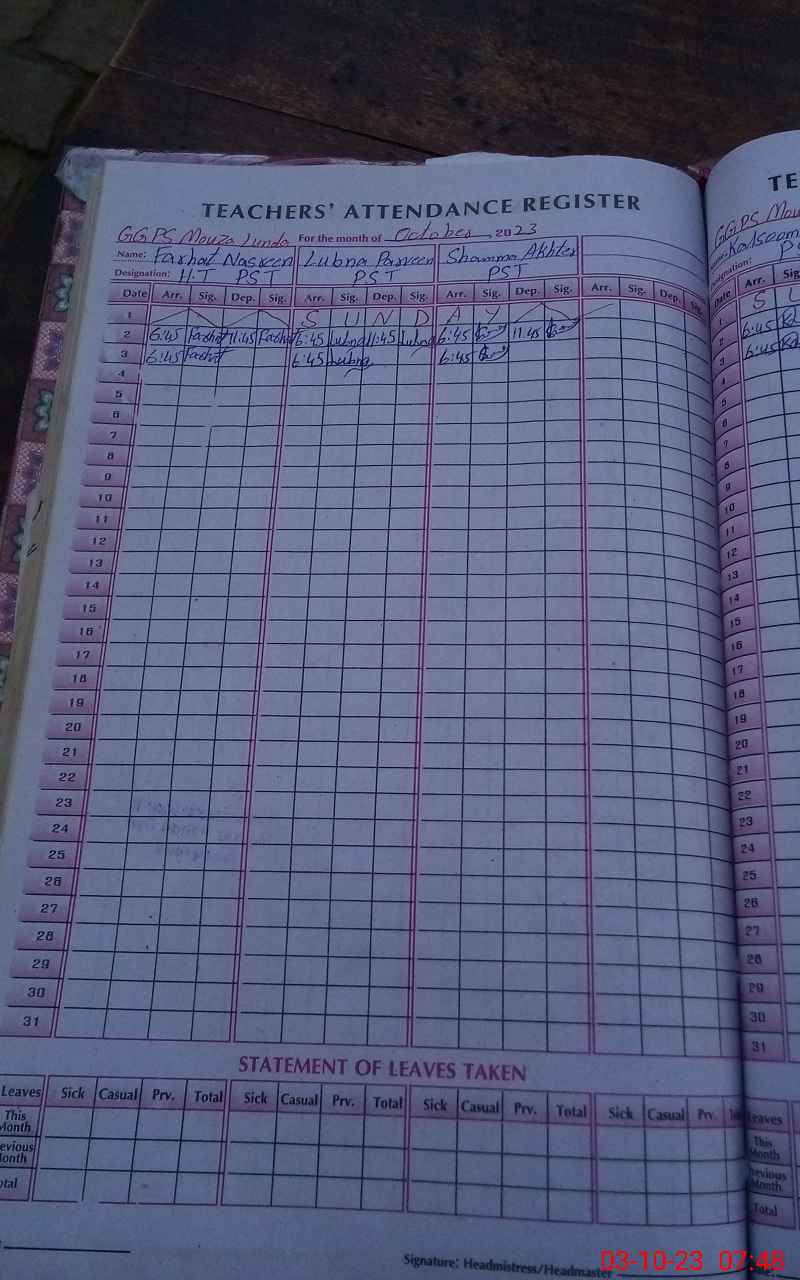 TEACHERS' ATTENDANCE REGISTER
GGPS Mouza Linda For the month of October 2023
Name: Farhat Nasreen Lubna Parveen Shamma Akhter
Designation: H.T PST PST PST
Date Arr. Sig. Dep. Sig. Arr. Sig. Dep. Sig. Arr. Sig. Dep. Sig. Arr. Sig. Dep. Sig.
1 S U N D A Y
2 6:45 Farhat 11:45 Farhat 6:45 Lubna 11:45 Lubna 6:45 11.45
3 6:45 Farhat 6:45 Lubna 6:45
4
5
6
7
8
9
10
11
12
13
14
15
16
17
18
19
20
21
22
23
24
25
26
27
28
29
30
31
STATEMENT OF LEAVES TAKEN
Leaves Sick Casual Prv. Total Sick Casual Prv. Total Sick Casual Prv. Total Sick Casual Prv.
This Month
evious onth
otal
Signature: Headmistress/Headmaster
TE
GGPS Mou
Name: Kalsoom
Designation: P
Date Arr. Sig.
1 S U
2 6:45
3 6:45
4
5
6
7
8
9
10
11
12
13
14
15
16
17
18
19
20
21
22
23
24
25
26
27
28
29
30
31
Leaves
This Month
Previous Month
Total
03-10-23 07:48